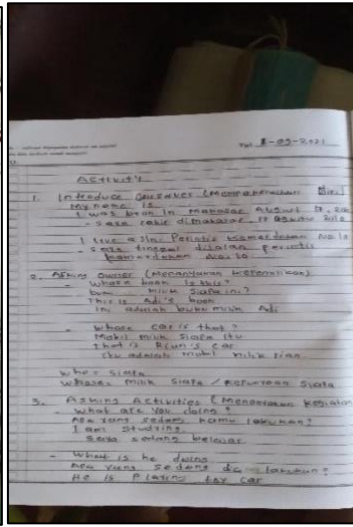 Tgl. 8-09-2021
Activity
1. Introduce Ourselves (Memperkenalkan Diri)
My name is
I was born in Makasar August 17, 200
- Saya lahir di makasar 17 Agustus
I live at Jln. Perintis Kemerdekaan No.10
- Saya tinggal di jalan perintis
kemerdekaan No. 10
2. Asking Owner (Menanyakan Kepemilikan)
- Whose book is this?
buku milik siapa ini?
This is Adi's book
Ini adalah buku milik Adi
- Whose car is that?
Mobil milik siapa itu
that is Rian's car
Itu adalah mobil milik rian
who = siapa
whose = milik siapa / kepunyaan siapa
3. Asking Activities (Menanyakan kegiatan
- What are you doing?
Apa yang sedang kamu lakukan?
I am studying
Saya sedang belajar
- What is he doing
Apa yang sedang dia lakukan?
He is playing toy car